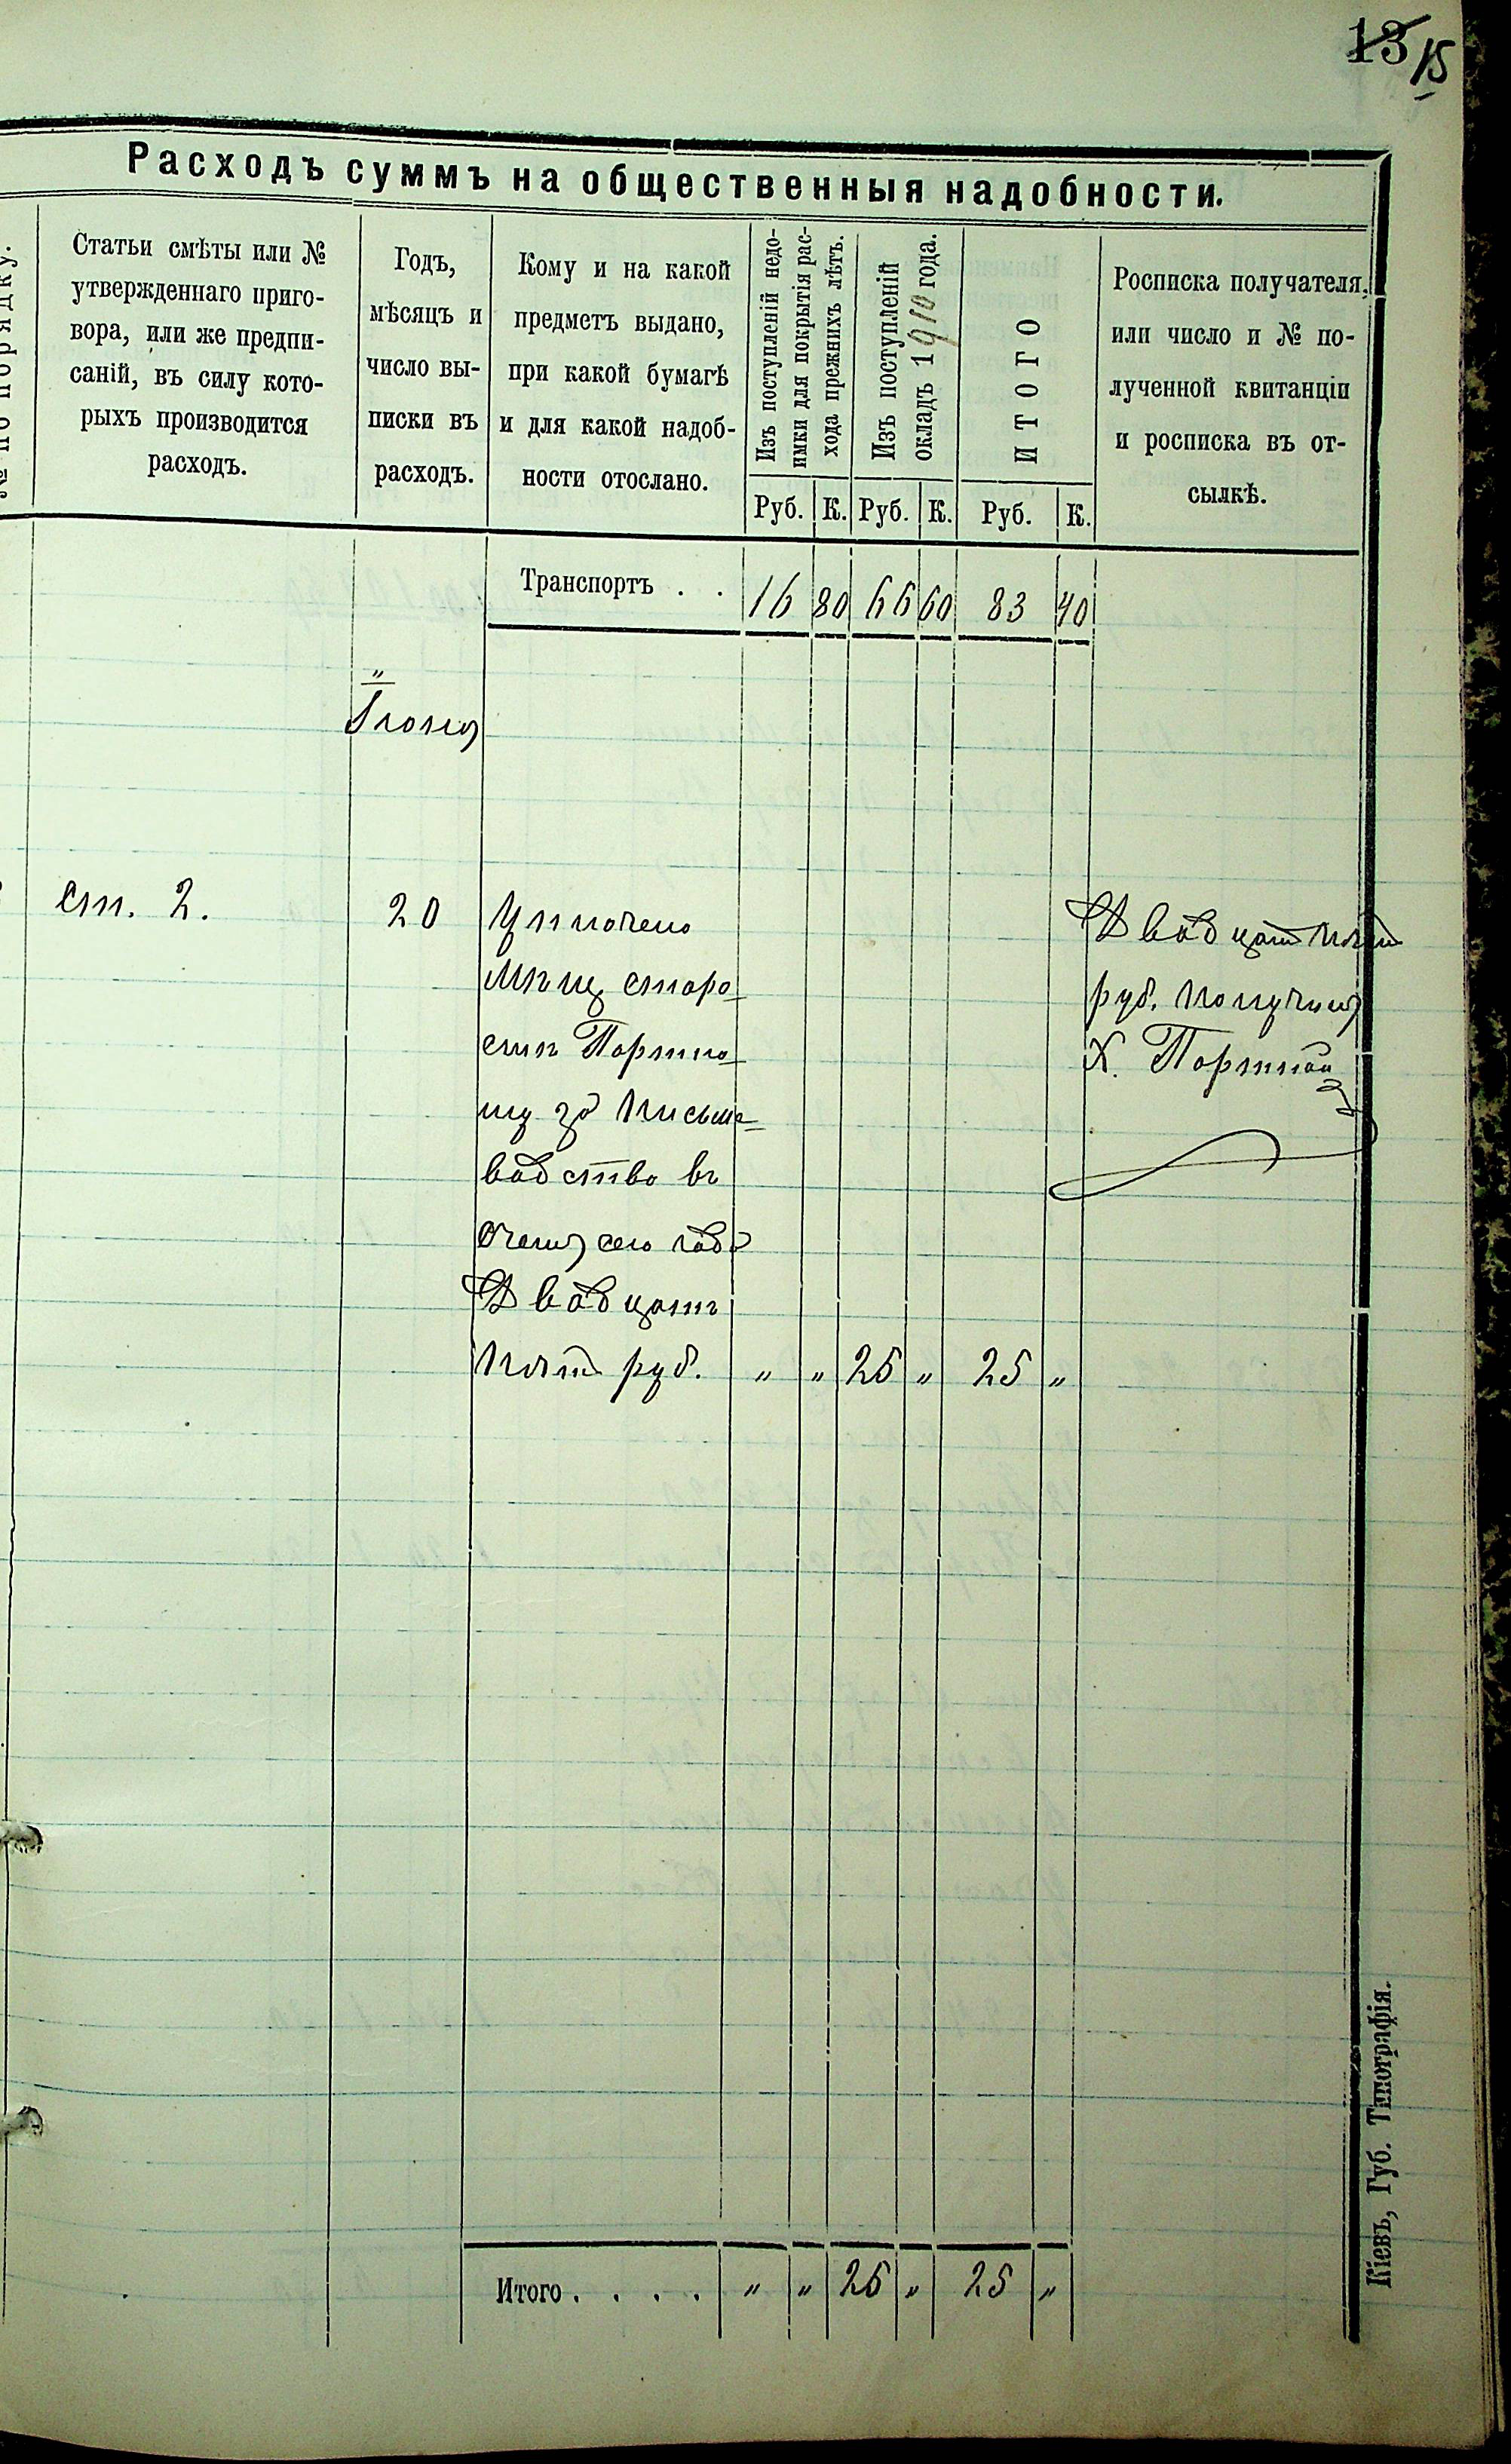 13 15
Расходъ суммъ на общественныя надобности.
№ по порядку.
Статьи смѣты или №
утвержденнаго приго-
вора, или же предпи-
саній, въ силу кото-
рыхъ производится
расходъ.
Годъ,
мѣсяцъ и
число вы-
писки въ
расходъ.
Кому и на какой
предметъ выдано,
при какой бумагѣ
и для какой надоб-
ности отослано.
Изъ поступленій недо-
имки для покрытія рас-
хода прежнихъ лѣтъ.
Изъ поступленій
окладъ 1910 года.
ИТОГО
Росписка получателя,
или число и № по-
лученной квитанціи
и росписка въ от-
сылкѣ.
Руб. К. Руб. К. Руб. К.
Транспортъ . . 16 80 66 60 83 40
"
Іюня
ст. 2. 20 Уплочено
Мѣщ старо
стѣ Портно
му за Письмо
водство въ
счетъ сего года
Двадцать
Пять руб. " " 25 " 25 "
Двадцать Пять
руб. Получилъ
Х. Портной
Итого . . . . " " 25 " 25 "
Кіевъ, Губ. Типографія.